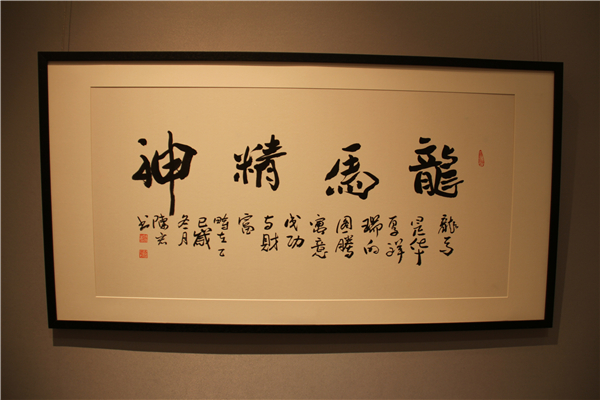 龍馬精神
龍马
是华
夏祥
瑞的
图腾
寓意
成功
与财
富
时在乙
巳岁
冬月
书